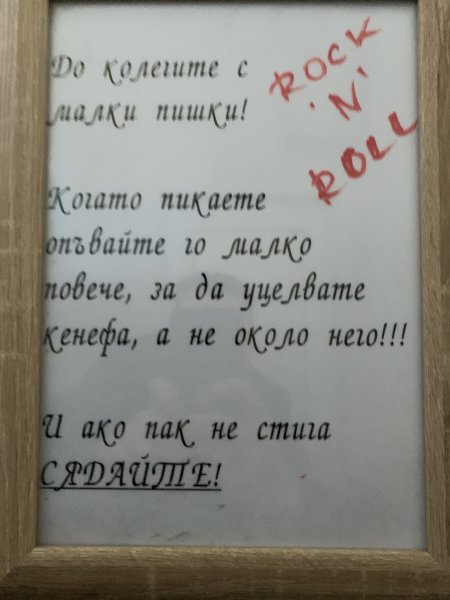 До колегите с
малки пишки!
ROCK
'N'
ROLL
Когато пикаете
опъвайте го малко
повече, за да уцелвате
кенефа, а не около него!!!
И ако пак не стига
СЯДАЙТЕ!